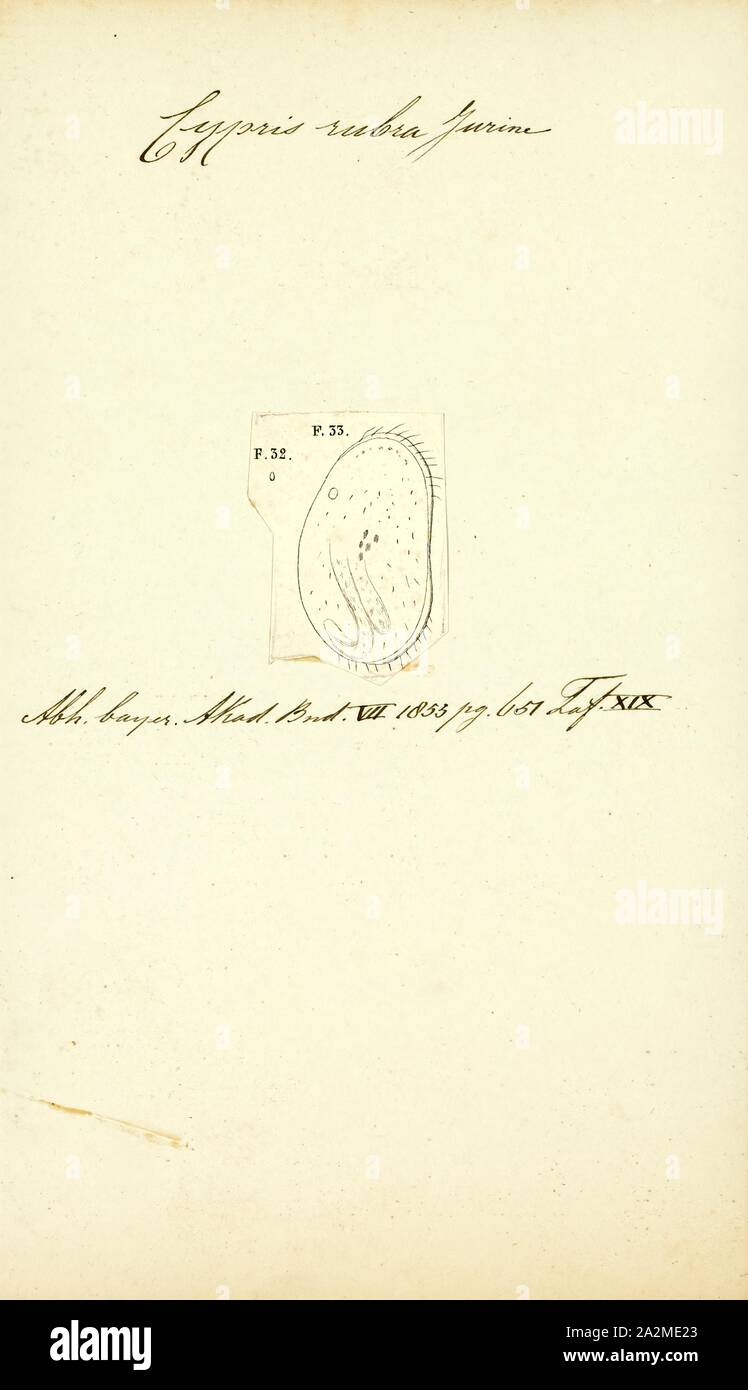 Cypris rubra Jurine
alamy
F. 33.
F. 32.
Abh. bayer. Akad. Bnd. VII 1855 pg. 651 Taf. XIX
alamy
alamy
Image ID: 2A2ME23
www.alamy.com